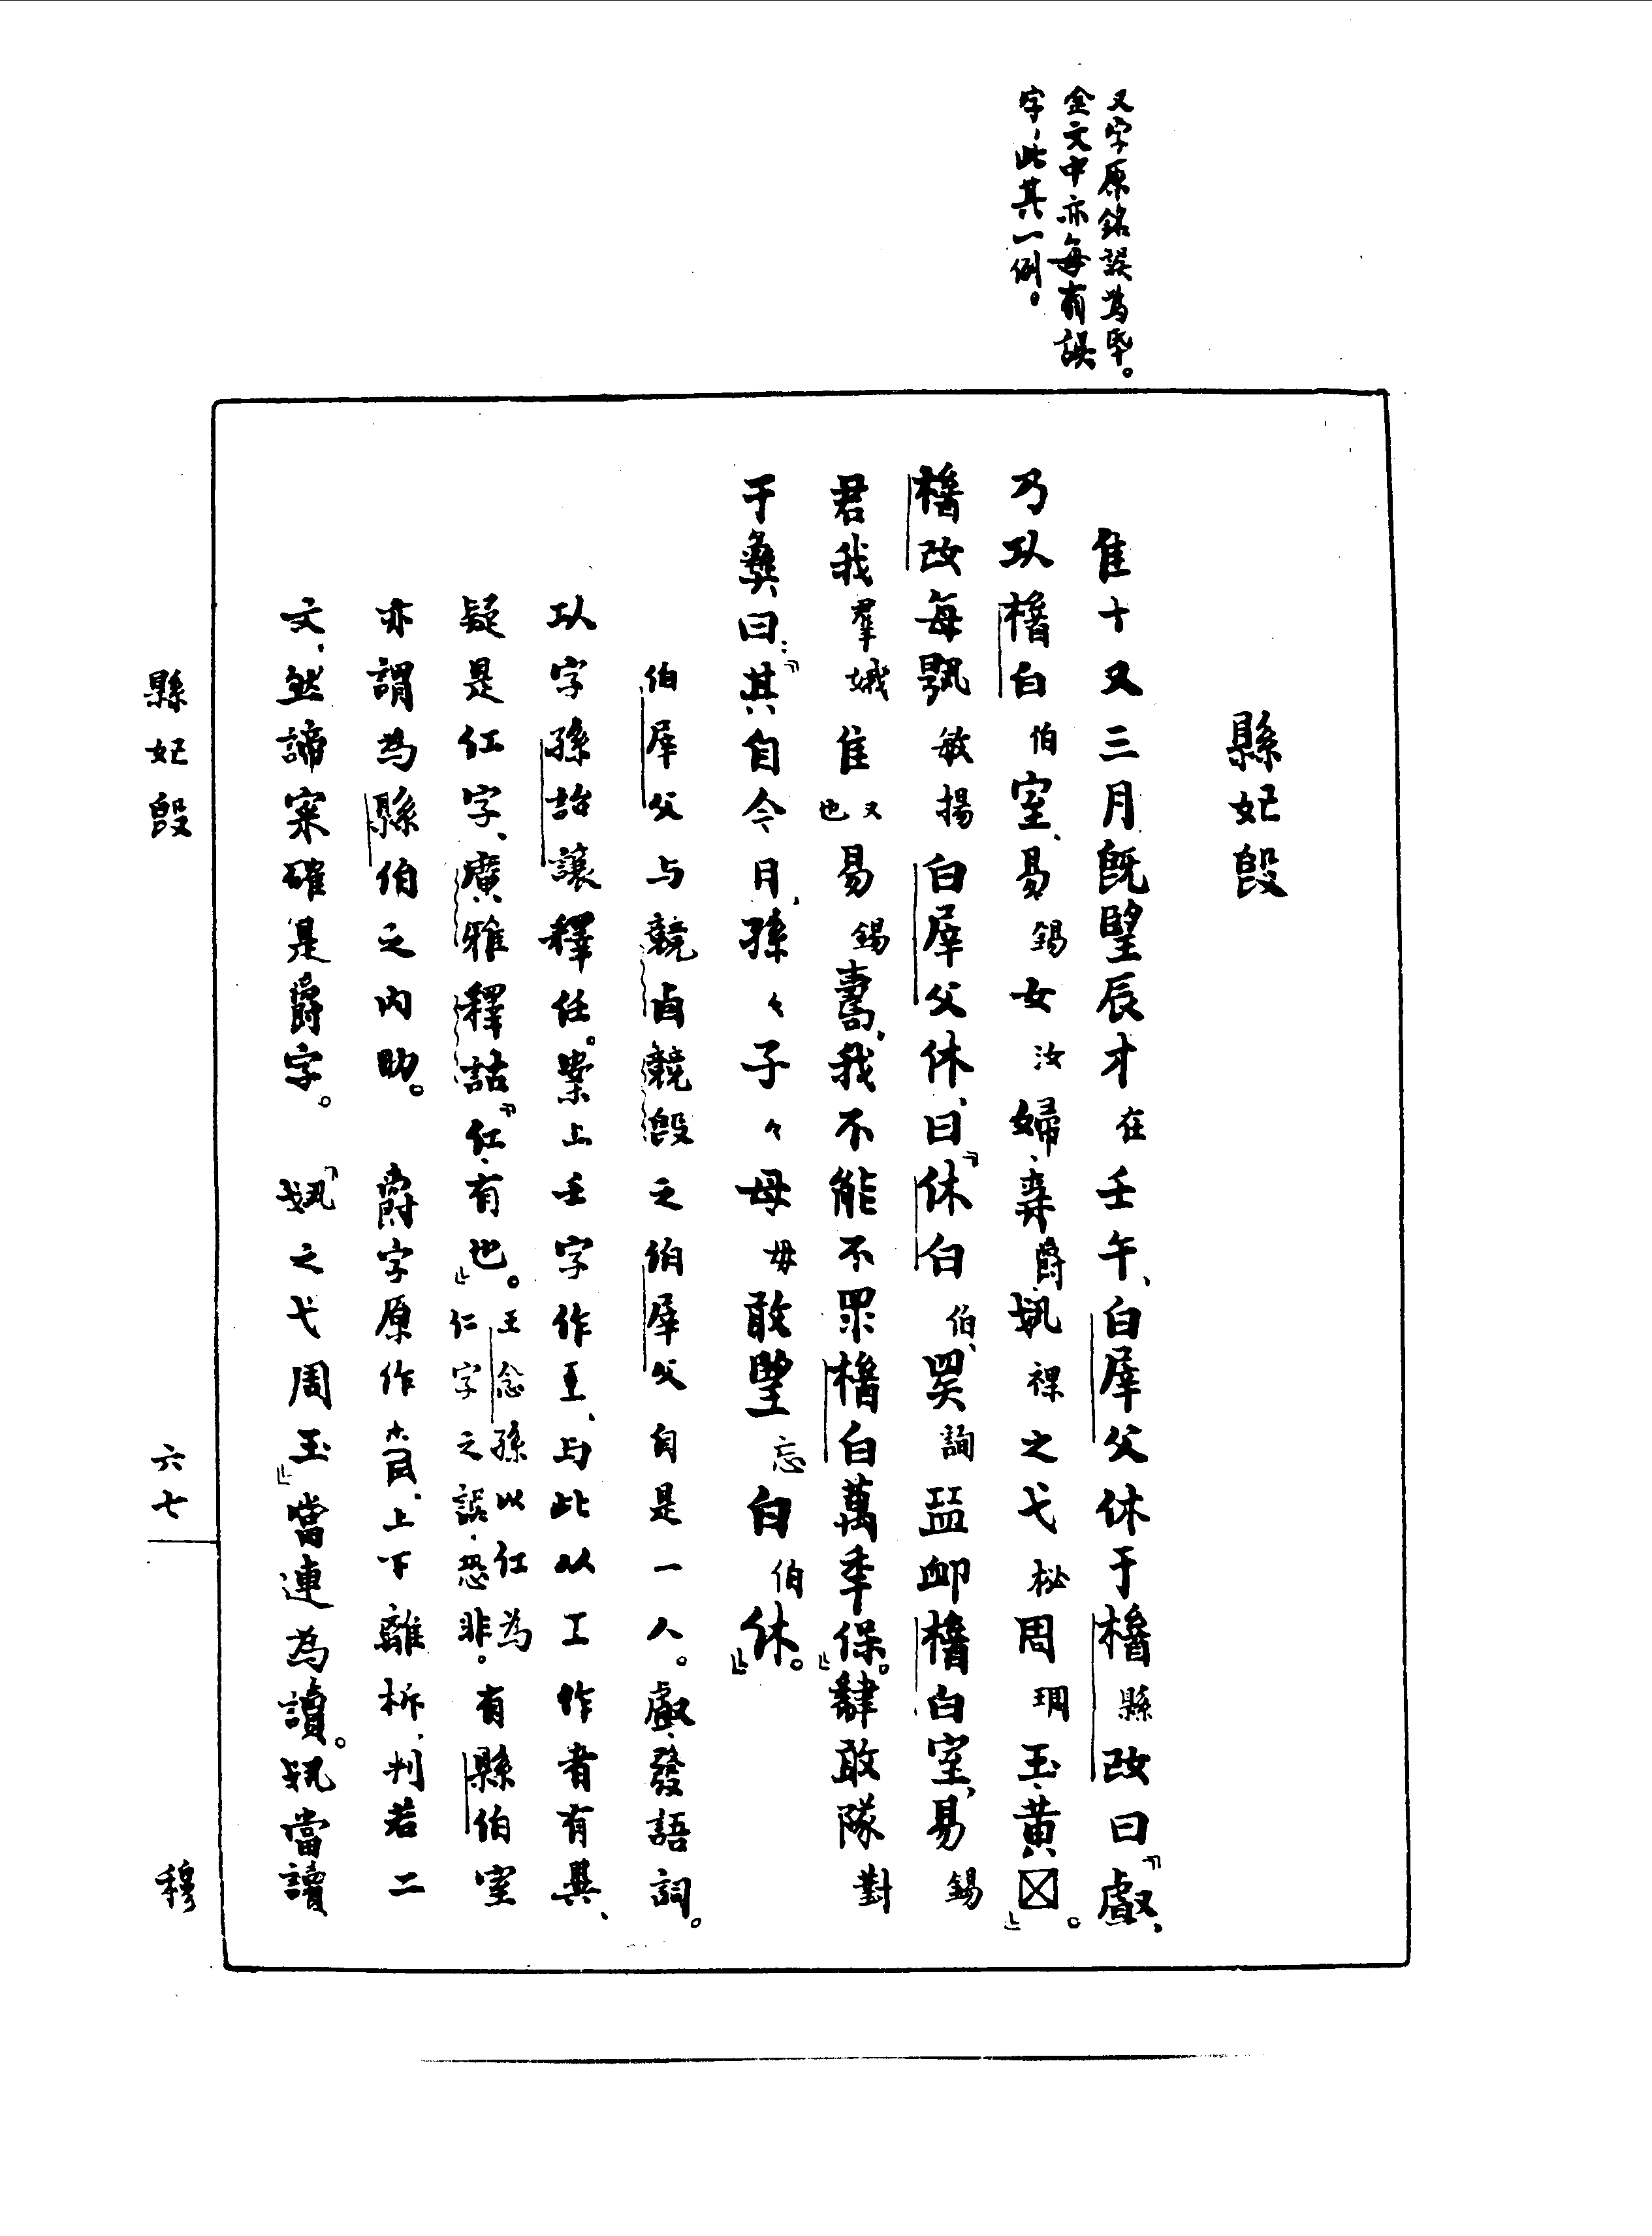 又字原銘誤為氒。
金文中亦每有誤
字，此其一例。
縣妃𣪘
隹十又三月既朢辰才在壬午、白屖父休于𥣫縣改曰『𠭯、
乃㠯𥣫白伯室、易錫女汝婦、爵𡠦祼之戈柲周琱玉、黃☒』。
𥣫改每敏揚白屖父休、曰『休白伯、睪詢卹𥣫白室、易錫
君我羣娥隹也又易錫壽、我不能不眔𥣫白萬年保。』肆敢隊對
于彝曰：『其自今日、孫々子々母毋敢朢忘白伯休。』
伯屖父与競卣競𣪘之伯屖父自是一人。𠭯、發語詞。
字孫詒讓釋任。案上壬字作、与此从工作者有異、
疑是仜字、廣雅釋詁『仜、有也。』王念孫以仜為
仁字之誤、恐非。有縣伯室
亦謂為縣伯之內助。爵字原作、上下離析、判若二
文、然諦案確是爵字。『之戈周玉』當連為讀。當讀
縣妃𣪘
六七
穆